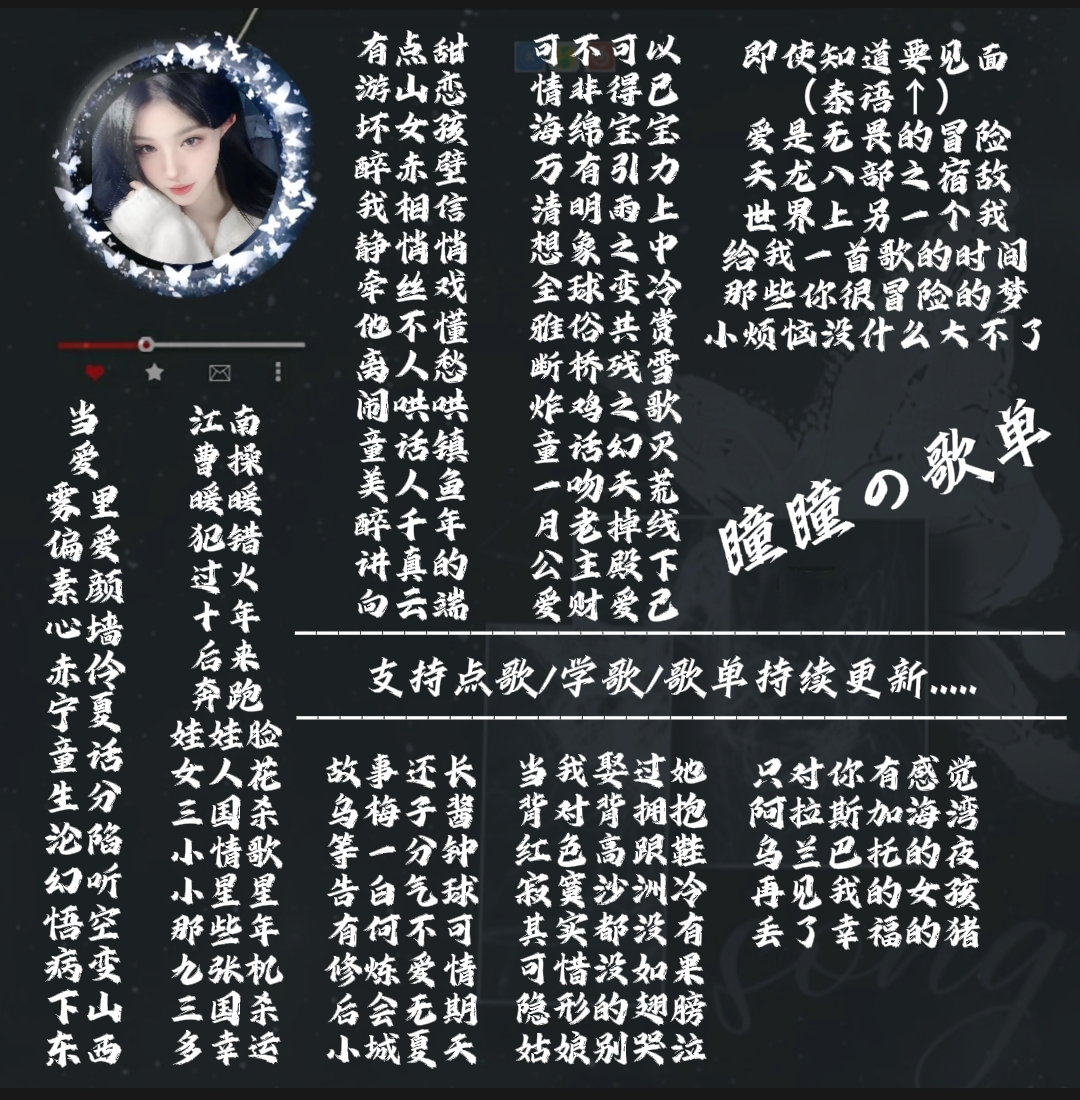 当
爱
雾里
偏爱
素颜
心墙
赤伶
宁夏
童话
生分
沦陷
幻听
悟空
病变
下山
东西
江南
曹操
暖暖
犯错
过火
十年
后来
奔跑
娃娃脸
女人花
三国杀
小情歌
小星星
那些年
九张机
三国杀
多幸运
有点甜
游山恋
坏女孩
醉赤壁
我相信
静悄悄
牵丝戏
他不懂
离人愁
闹哄哄
童话镇
美人鱼
醉千年
讲真的
向云端
可不可以
情非得已
海绵宝宝
万有引力
清明雨上
想象之中
全球变冷
雅俗共赏
断桥残雪
炸鸡之歌
童话幻灭
一吻天荒
月老掉线
公主殿下
爱财爱己
即使知道要见面
（泰语↑）
爱是无畏的冒险
天龙八部之宿敌
世界上另一个我
给我一首歌的时间
那些你很冒险的梦
小烦恼没什么大不了
瞳瞳の歌单
支持点歌/学歌/歌单持续更新.....
故事还长
乌梅子酱
等一分钟
告白气球
有何不可
修炼爱情
后会无期
小城夏天
当我娶过她
背对背拥抱
红色高跟鞋
寂寞沙洲冷
其实都没有
可惜没如果
隐形的翅膀
姑娘别哭泣
只对你有感觉
阿拉斯加海湾
乌兰巴托的夜
再见我的女孩
丢了幸福的猪
song